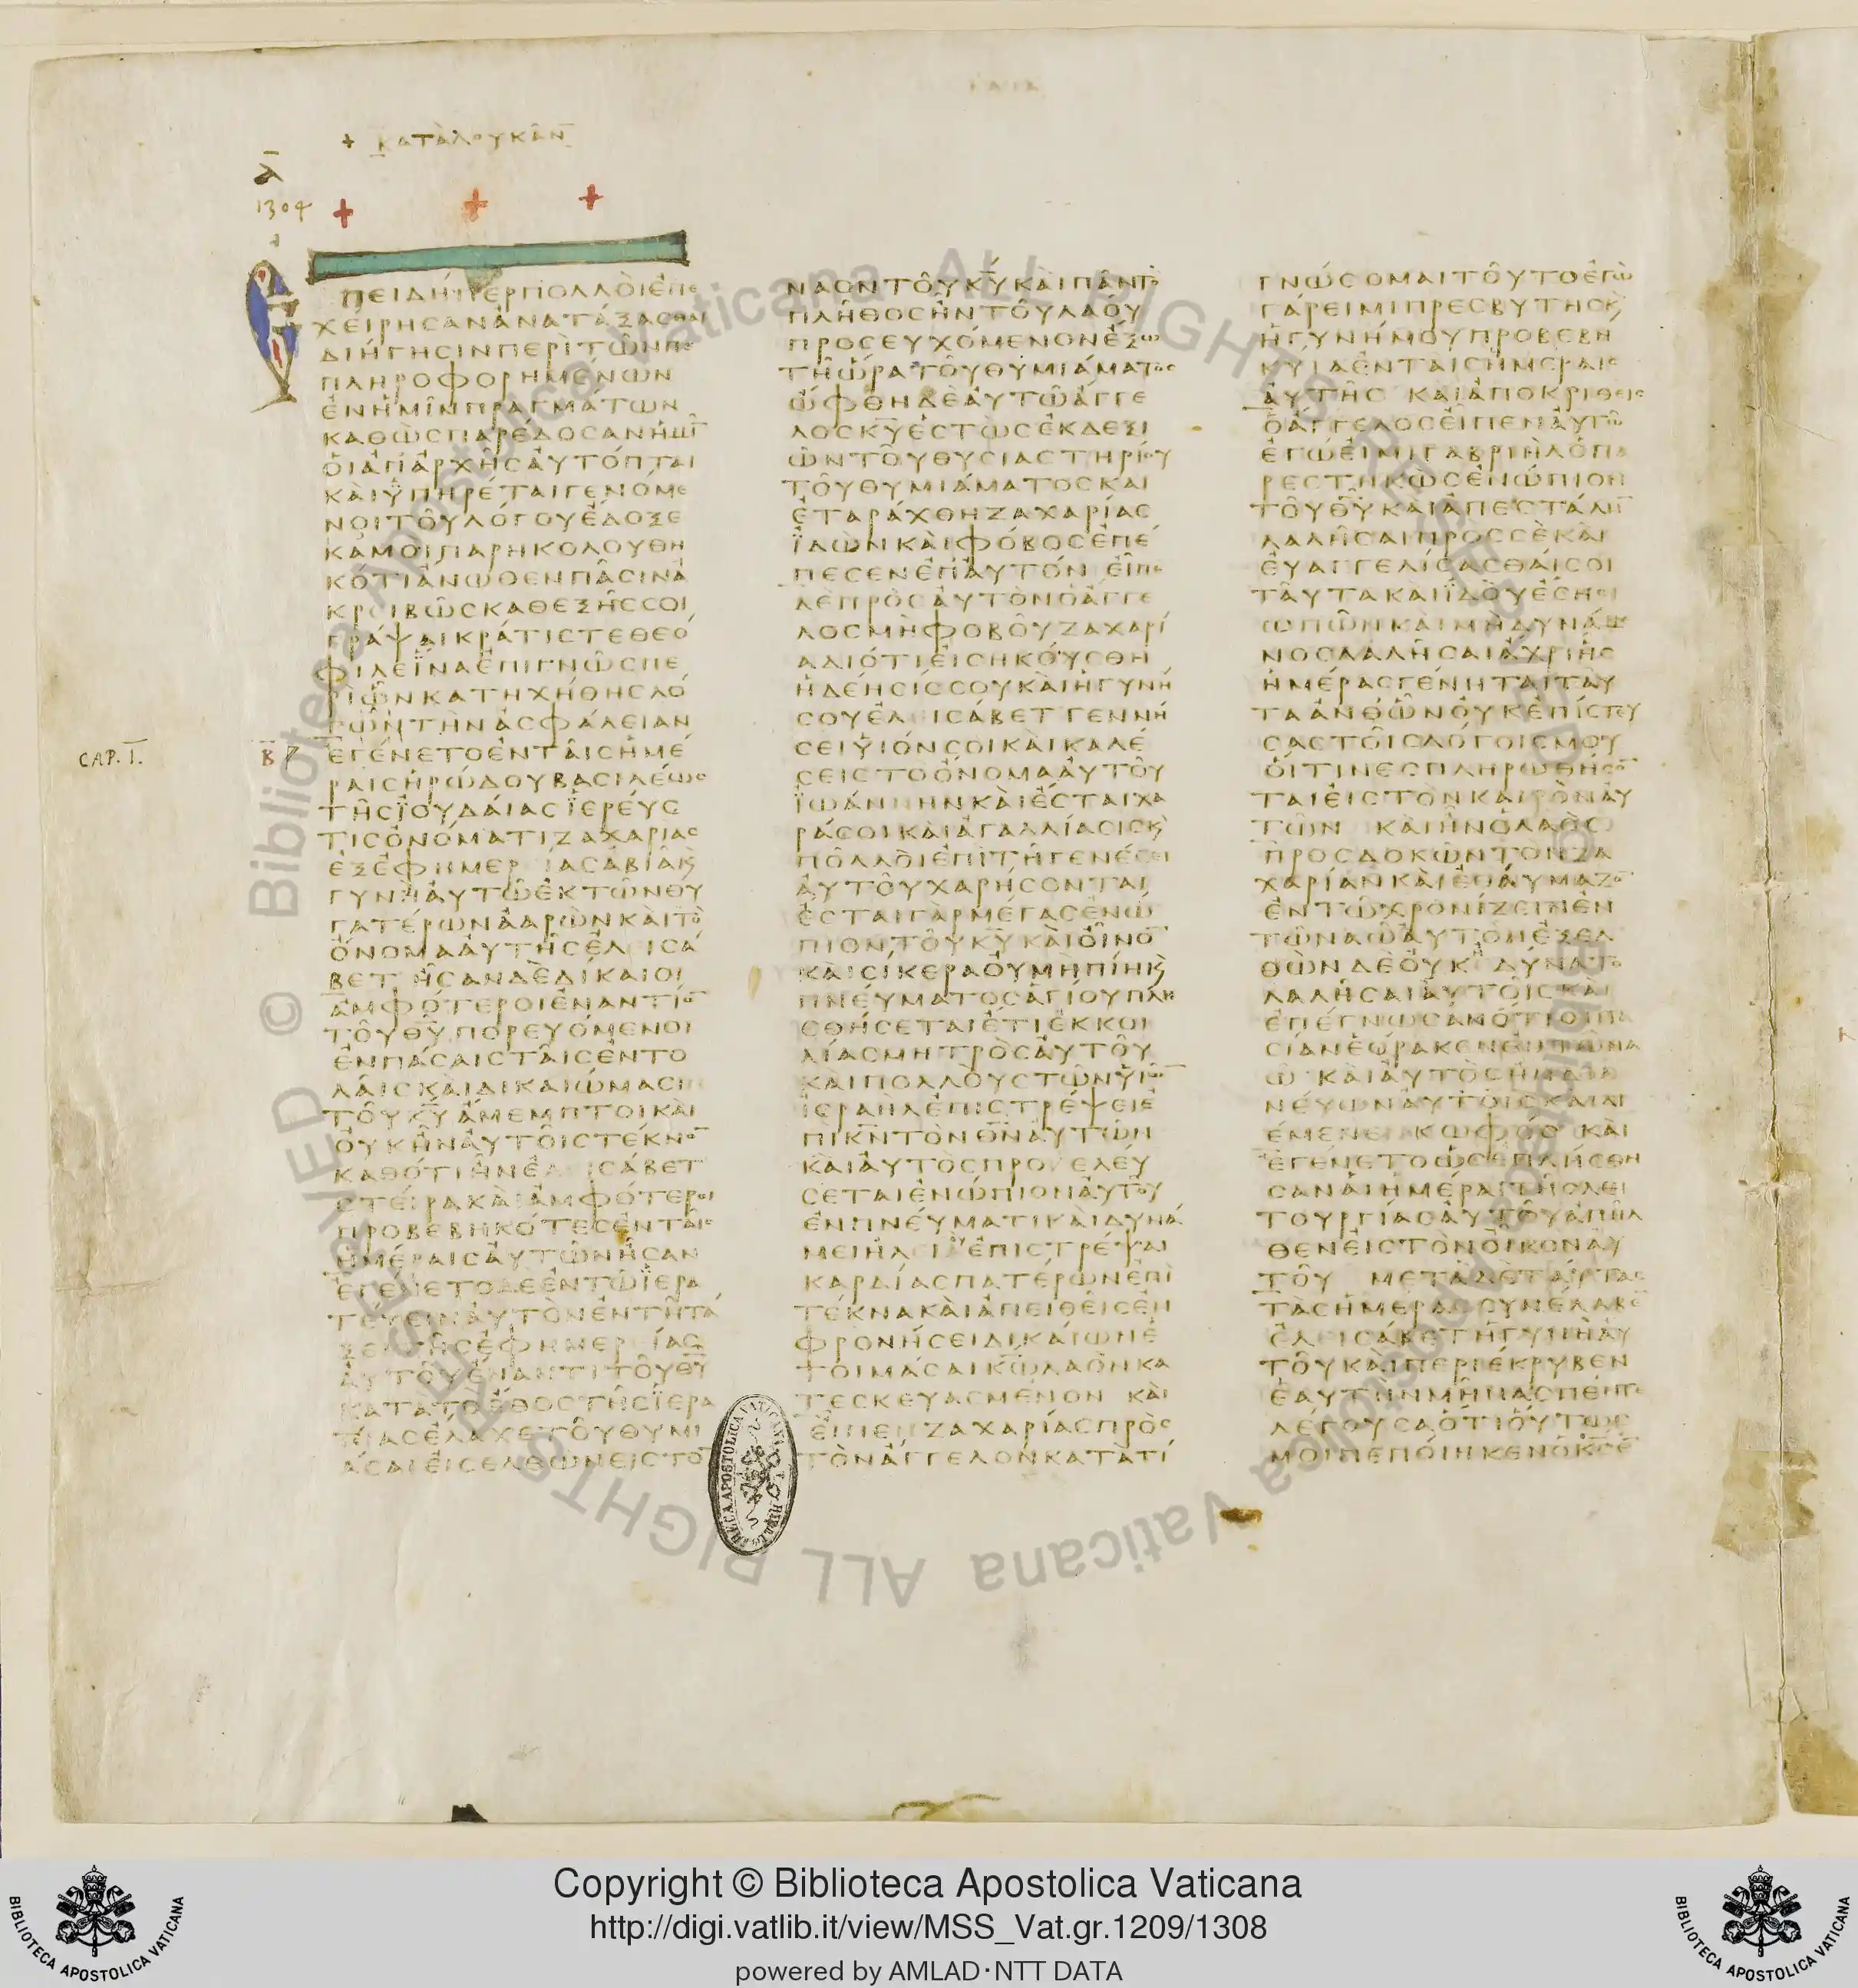 ΚΑΤΑ ΛΟΥΚΑΝ
Α
1304
ΕΠΕΙΔΗΠΕΡΠΟΛΛΟΙΕΠΕ
ΧΕΙΡΗΣΑΝΑΝΑΤΑΞΑΣΘΑΙ
ΔΙΗΓΗΣΙΝΠΕΡΙΤΩΝΠΕ
ΠΛΗΡΟΦΟΡΗΜΕΝΩΝ
ΕΝΗΜΙΝΠΡΑΓΜΑΤΩΝ
ΚΑΘΩΣΠΑΡΕΔΟΣΑΝΗΜΙ̅
ΟΙΑΠΑΡΧΗΣΑΥΤΟΠΤΑΙ
ΚΑΙΥΠΗΡΕΤΑΙΓΕΝΟΜΕ
ΝΟΙΤΟΥΛΟΓΟΥΕΔΟΞΕ
ΚΑΜΟΙΠΑΡΗΚΟΛΟΥΘΗ
ΚΟΤΙΑΝΩΘΕΝΠΑΣΙΝΑ
ΚΡΕΙΒΩΣΚΑΘΕΞΗΣΣΟΙ
ΓΡΑΨΑΙΚΡΑΤΙΣΤΕΘΕΟ
ΦΙΛΕΪΝΑΕΠΙΓΝΩΣΠΕ
ΡΙΩΝΚΑΤΗΧΗΘΗΣΛΟ
ΓΩΝΤΗΝΑΣΦΑΛΕΙΑΝ
CAP. I.
Β
ΕΓΕΝΕΤΟΕΝΤΑΙΣΗΜΕ
ΡΑΙΣΗΡΩΔΟΥΒΑΣΙΛΕΩΣ
ΤΗΣΪΟΥΔΑΙΑΣΪΕΡΕΥΣ
ΤΙΣΟΝΟΜΑΤΙΖΑΧΑΡΙΑΣ
ΕΞΕΦΗΜΕΡΙΑΣΑΒΙΑϗ
ΓΥΝΗΑΥΤΩΕΚΤΩΝΘΥ
ΓΑΤΕΡΩΝΑΑΡΩΝΚΑΙΤΟ
ΟΝΟΜΑΑΥΤΗΣΕΛΙΣΑ
ΒΕΤ ΗΣΑΝΔΕΔΙΚΑΙΟΙ
ΑΜΦΟΤΕΡΟΙΕΝΑΝΤΙΟ̅
ΤΟΥΘ̅Υ̅ΠΟΡΕΥΟΜΕΝΟΙ
ΕΝΠΑΣΑΙΣΤΑΙΣΕΝΤΟ
ΛΑΙΣΚΑΙΔΙΚΑΙΩΜΑΣΙ
ΤΟΥΚ̅Υ̅ΑΜΕΜΠΤΟΙΚΑΙ
ΟΥΚΗΝΑΥΤΟΙΣΤΕΚΝΟ̅
ΚΑΘΟΤΙΗΝΕΛΙΣΑΒΕΤ
ΣΤΕΙΡΑΚΑΙΑΜΦΟΤΕΡΟΙ
ΠΡΟΒΕΒΗΚΟΤΕΣΕΝΤΑΙΣ
ΗΜΕΡΑΙΣΑΥΤΩΝΗΣΑΝ
ΕΓΕΝΕΤΟΔΕΕΝΤΩΪΕΡΑ
ΤΕΥΕΙΝΑΥΤΟΝΕΝΤΗΤΑ
ΞΕΙΤΗΣΕΦΗΜΕΡΙΑΣ
ΑΥΤΟΥΕΝΑΝΤΙΤΟΥΘ̅Υ̅
ΚΑΤΑΤΟΕΘΟΣΤΗΣΪΕΡΑ
ΤΙΑΣΕΛΑΧΕΤΟΥΘΥΜΙ
ΑΣΑΙΕΙΣΕΛΘΩΝΕΙΣΤΟ̅
ΝΑΟΝΤΟΥΚ̅Υ̅ΚΑΙΠΑΝΤΟ
ΠΛΗΘΟΣΗΝΤΟΥΛΑΟΥ
ΠΡΟΣΕΥΧΟΜΕΝΟΝΕΞΩ
ΤΗΩΡΑΤΟΥΘΥΜΙΑΜΑΤΟΣ
ΩΦΘΗΔΕΑΥΤΩΑΓΓΕ
ΛΟΣΚ̅Υ̅ΕΣΤΩΣΕΚΔΕΞΙ
ΩΝΤΟΥΘΥΣΙΑΣΤΗΡΙΟΥ
ΤΟΥΘΥΜΙΑΜΑΤΟΣΚΑΙ
ΕΤΑΡΑΧΘΗΖΑΧΑΡΙΑΣ
ΪΔΩΝΚΑΙΦΟΒΟΣΕΠΕ
ΠΕΣΕΝΕΠΑΥΤΟΝ ΕΙΠΕ
ΔΕΠΡΟΣΑΥΤΟΝΟΑΓΓΕ
ΛΟΣΜΗΦΟΒΟΥΖΑΧΑΡΙ
ΑΔΙΟΤΙΕΙΣΗΚΟΥΣΘΗ
ΗΔΕΗΣΙΣΣΟΥΚΑΙΗΓΥΝΗ
ΣΟΥΕΛΙΣΑΒΕΤ ΓΕΝΝΗ
ΣΕΙΥΙΟΝΣΟΙΚΑΙΚΑΛΕ
ΣΕΙΣΤΟΟΝΟΜΑΑΥΤΟΥ
ΪΩΑΝΗΝΚΑΙΕΣΤΑΙΧΑ
ΡΑΣΟΙΚΑΙΑΓΑΛΛΙΑΣΙΣϗ
ΠΟΛΛΟΙΕΠΙΤΗΓΕΝΕΣΕΙ
ΑΥΤΟΥΧΑΡΗΣΟΝΤΑΙ
ΕΣΤΑΙΓΑΡΜΕΓΑΣΕΝΩ
ΠΙΟΝΤΟΥΚ̅Υ̅ΚΑΙΟΙΝΟ̅
ΚΑΙΣΙΚΕΡΑΟΥΜΗΠΙΗϗ
ΠΝΕΥΜΑΤΟΣΑΓΙΟΥΠΛΗ
ΣΘΗΣΕΤΑΙΕΤΙΕΚΚΟΙ
ΛΙΑΣΜΗΤΡΟΣΑΥΤΟΥ
ΚΑΙΠΟΛΛΟΥΣΤΩΝΥΙΩ̅
ΙΣΡΑΗΛΕΠΙΣΤΡΕΨΕΙΕ
ΠΙΚ̅Ν̅ΤΟΝΘ̅Ν̅ΑΥΤΩΝ
ΚΑΙΑΥΤΟΣΠΡΟΕΛΕΥ
ΣΕΤΑΙΕΝΩΠΙΟΝΑΥΤΟΥ
ΕΝΠΝΕΥΜΑΤΙΚΑΙΔΥΝΑ
ΜΕΙΗΛΙΟΥΕΠΙΣΤΡΕΨΑΙ
ΚΑΡΔΙΑΣΠΑΤΕΡΩΝΕΠΙ
ΤΕΚΝΑΚΑΙΑΠΕΙΘΕΙΣΕΝ
ΦΡΟΝΗΣΕΙΔΙΚΑΙΩΝΕ
ΤΟΙΜΑΣΑΙΚ̅Ω̅ΛΑΟΝΚΑ
ΤΕΣΚΕΥΑΣΜΕΝΟΝ ΚΑΙ
ΕΙΠΕΝΖΑΧΑΡΙΑΣΠΡΟΣ
ΤΟΝΑΓΓΕΛΟΝΚΑΤΑΤΙ
ΓΝΩΣΟΜΑΙΤΟΥΤΟΕΓΩ
ΓΑΡΕΙΜΙΠΡΕΣΒΥΤΗΣϗ
ΗΓΥΝΗΜΟΥΠΡΟΒΕΒΗ
ΚΥΙΑΕΝΤΑΙΣΗΜΕΡΑΙΣ
ΑΥΤΗΣ ΚΑΙΑΠΟΚΡΙΘΕΙΣ
ΟΑΓΓΕΛΟΣΕΙΠΕΝΑΥΤΩ
ΕΓΩΕΙΜΙΓΑΒΡΙΗΛΟΠΑ
ΡΕΣΤΗΚΩΣΕΝΩΠΙΟΝ
ΤΟΥΘ̅Υ̅ΚΑΙΑΠΕΣΤΑΛΗ̅
ΛΑΛΗΣΑΙΠΡΟΣΣΕΚΑΙ
ΕΥΑΓΓΕΛΙΣΑΣΘΑΙΣΟΙ
ΤΑΥΤΑΚΑΙΪΔΟΥΕΣΗΣΙ
ΩΠΩΝΚΑΙΜΗΔΥΝΑΜΕ
ΝΟΣΛΑΛΗΣΑΙΑΧΡΙΗΣ
ΗΜΕΡΑΣΓΕΝΗΤΑΙΤΑΥ
ΤΑΑΝΘΩΝΟΥΚΕΠΙΣΤΕΥ
ΣΑΣΤΟΙΣΛΟΓΟΙΣΜΟΥ
ΟΙΤΙΝΕΣΠΛΗΡΩΘΗΣΟ̅
ΤΑΙΕΙΣΤΟΝΚΑΙΡΟΝΑΥ
ΤΩΝ ΚΑΙΗΝΟΛΑΟΣ
ΠΡΟΣΔΟΚΩΝΤΟΝΖΑ
ΧΑΡΙΑΝΚΑΙΕΘΑΥΜΑΖΟ̅
ΕΝΤΩΧΡΟΝΙΖΕΙΝΕΝ
ΤΩΝΑΩΑΥΤΟΝΕΞΕΛ
ΘΩΝΔΕΟΥΚΗΔΥΝΑΤΟ
ΛΑΛΗΣΑΙΑΥΤΟΙΣΚΑΙ
ΕΠΕΓΝΩΣΑΝΟΤΙΟΠΤΑ
ΣΙΑΝΕΩΡΑΚΕΝΕΝΤΩΝΑ
Ω ΚΑΙΑΥΤΟΣΗΝΔΙΑ
ΝΕΥΩΝΑΥΤΟΙΣΚΑΙΔΙ
ΕΜΕΝΕΝΚΩΦΟΣ ΚΑΙ
ΕΓΕΝΕΤΟΩΣΕΠΛΗΣΘΗ
ΣΑΝΑΙΗΜΕΡΑΙΤΗΣΛΕΙ
ΤΟΥΡΓΙΑΣΑΥΤΟΥΑΠΗΛ
ΘΕΝΕΙΣΤΟΝΟΙΚΟΝΑΥ
ΤΟΥ ΜΕΤΑΔΕΤΑΥΤΑΣ
ΤΑΣΗΜΕΡΑΣΣΥΝΕΛΑΒΕ̅
ΕΛΕΙΣΑΒΕΤΗΓΥΝΗΑΥ
ΤΟΥΚΑΙΠΕΡΙΕΚΡΥΒΕΝ
ΕΑΥΤΗΝΜΗΝΑΣΠΕΝΤΕ
ΛΕΓΟΥΣΑΟΤΙΟΥΤΩΣ
ΜΟΙΠΕΠΟΙΗΚΕΝΟΚ̅Σ̅Ε̅
© Biblioteca Apostolica Vaticana ALL RIGHTS RESERVED
Copyright © Biblioteca Apostolica Vaticana
http://digi.vatlib.it/view/MSS_Vat.gr.1209/1308
powered by AMLAD·NTT DATA
BIBLIOTECA APOSTOLICA VATICANA
BIBLIOTECA APOSTOLICA VATICANA